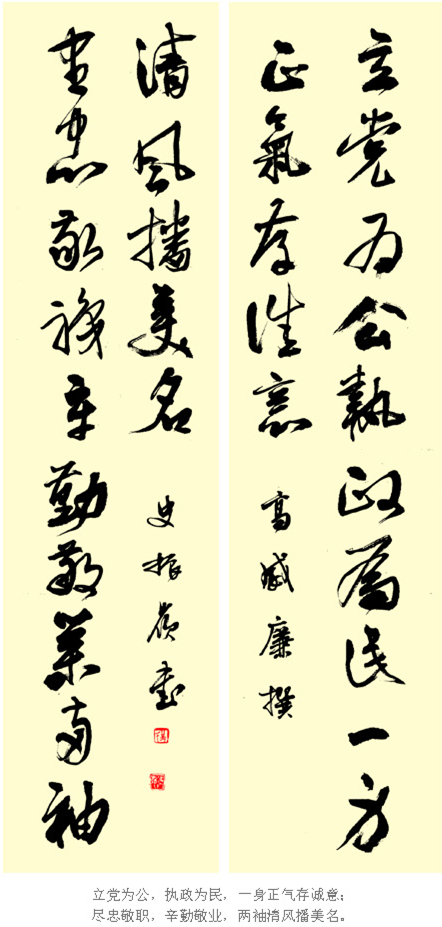 立党为公執政為民一身
正氣存誠意
高 廉撰
盡忠敬職辛勤敬業两袖
清风播美名
史振岭書
立党为公，执政为民，一身正气存诚意；
尽忠敬职，辛勤敬业，两袖清风播美名。